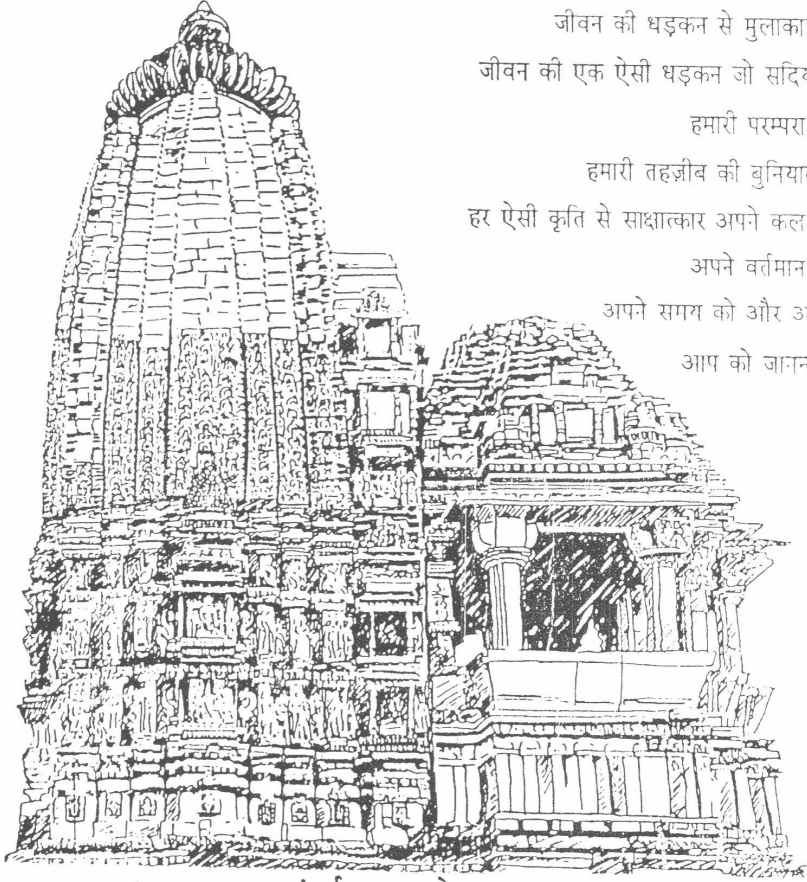 जीवन की धड़कन से मुलाका
जीवन की एक ऐसी धड़कन जो सदिय
हमारी परम्परा
हमारी तहज़ीब की बुनिया
हर ऐसी कृति से साक्षात्कार अपने कल
अपने वर्तमान
अपने समय को और अ
आप को जानन